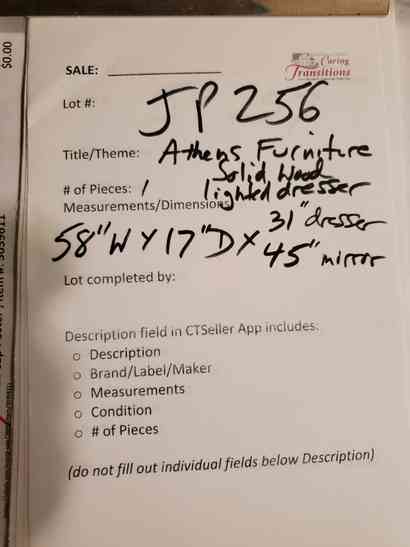 $0.00
SALE:
Caring
Transitions
Lot #: JP 256
Title/Theme: Athens Furniture
Solid Wood
# of Pieces: 1 lighted dresser
Measurements/Dimensions
31" dresser
58"W X 17"D X
45" mirror
Lot completed by:
Description field in CTSeller App includes:
o Description
o Brand/Label/Maker
o Measurements
o Condition
o # of Pieces
(do not fill out individual fields below Description)